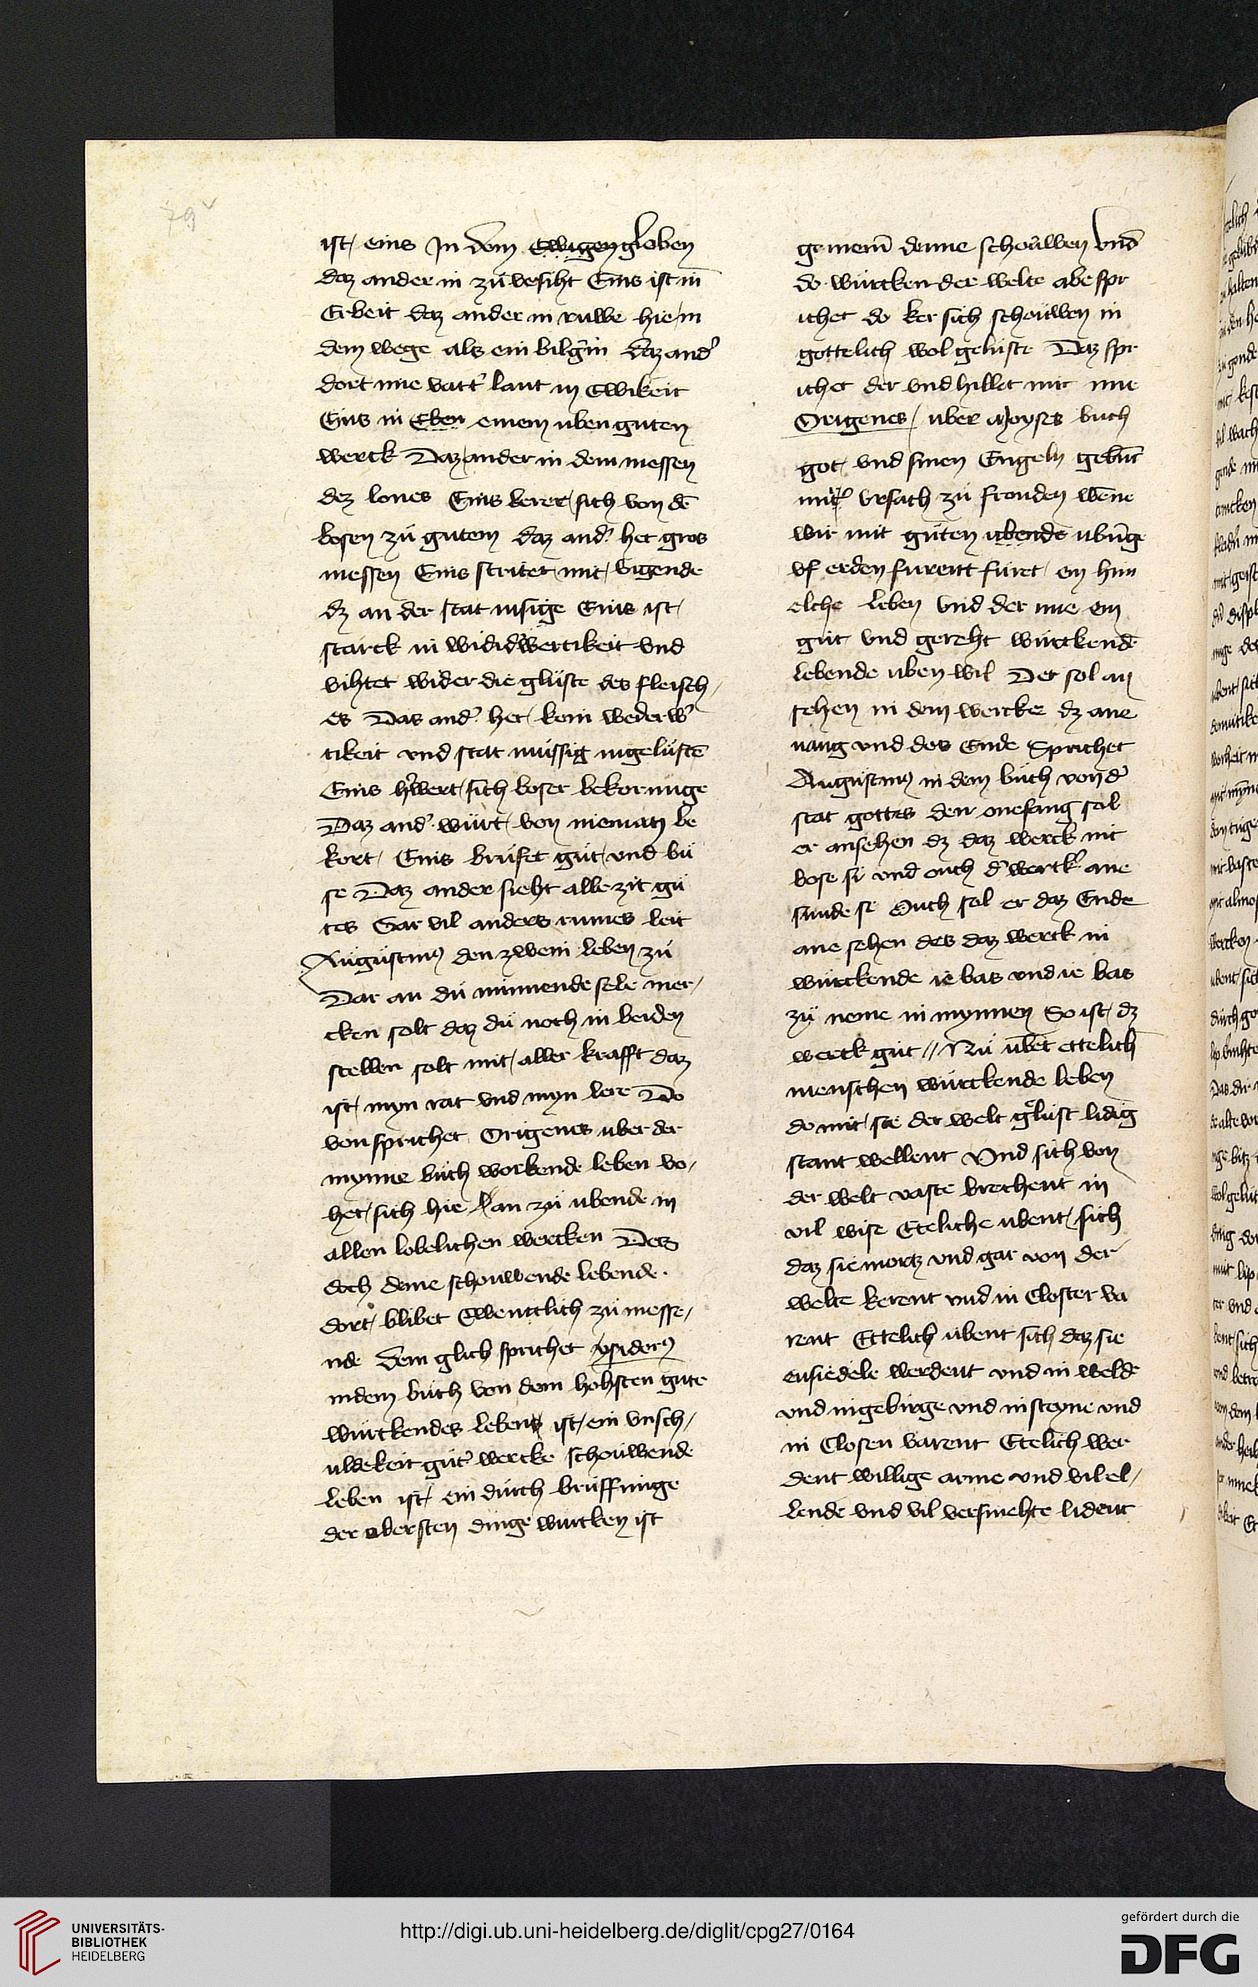 79v
ist eins In dem Ewigen gloͤben
daz ander in zuͦ vesiht Eins ist in
Erbeit daz ander in ruͦwe hie in
dem wege als ein bilgrin daz and'
dort ime vatt' lant in Ewikeit
Eins in Eben einem uben guten
werck Daz ander in dem messen
dez lones Eins kerer sich von dē
bosen zuͦ gutem daz and' het gros
messen Eins stritet mit vigende
dz an der stat insige Eins ist
starck in widid'wertikeit vnd
vihtet wider die gluste des fleisch
es Das and' het kein wederw'
tikeit vnd stat mussig ingelustē
Eins h'wert sich boser bekorunge
Daz and' wurt von nieman be
kort Eins brufet guͦt vnd buͦ
se Daz ander sieht alle zit guͦ
tes Gar vil anders rumes leit
Augustinus den zwein leben zuͦ
Dar an du minnende sele mer
cken solt daz du noch in beiden
stellen solt mit aller krafft daz
ist myn rat vnd myn lere Do
von sprichet Origenes uber der
mynne buch workende leben vo
het sich hie an zuͦ ubende in
allen lobelichen wercken Dez
doch deme schouwende lebende
dort blibet Ewenclich zuͦ messe
nde Dem glich sprichet ysiderus
indem buch von dem hohsten gute
wurckendes lebens ist ein vnsch
uldekeit guͦt' wercke schouwende
leben ist ein durch bruffunge
der obersten dinge wurcken ist
gemeim denne schouwen vnd
do wurcken der welte abe spr
ichet do ker sich schouwen in
gottelich wol geluste Daz spr
ichet der vnd hillet mit ime
Origenes uber Moyses buch
got vnd sinen Engeln gebirt
vrsach zuͦ frouden wēne
wir mit guten ubende ubūge
vf erden furent furet ein him
elche leben vnd der nue ein
guͦt vnd gereht wurckende
lebende uben wil Der sol an
sehen in dem wercke dz ane
uang vnd des Ende Sprichet
Augustinus in dem buch von d'
stat gottes den onefang sol
er ansehen dz daz werck nit
bose si vnd ouch d' werck' ane
sunde se Ouch sol er daz Ende
ane sehen des daz werck in
wurckende ie bas vnd ie bas
zuͦ neme in mynnen So ist dz
werck guͦt Nu ubet ettelich
menschen wurckende leben
do mit sie der welt gelust lidig
stant wellent Vnd sich von
der welt vaste brechent in
vil wise Eteliche ubent sich
daz sie mortz vnd gar von der
welte kerent vnd in Closter va
rent Ettelich ubent sich daz sie
ensiedele werdent vnd in welde
vnd ingebirge vnd in steyne vnd
in Closen varent Etelich wer
dent willige arme vnd vil el
lende vnd vil versmehte lident
UNIVERSITÄTS-
BIBLIOTHEK
HEIDELBERG
http://digi.ub.uni-heidelberg.de/diglit/cpg27/0164
gefördert durch die
DFG